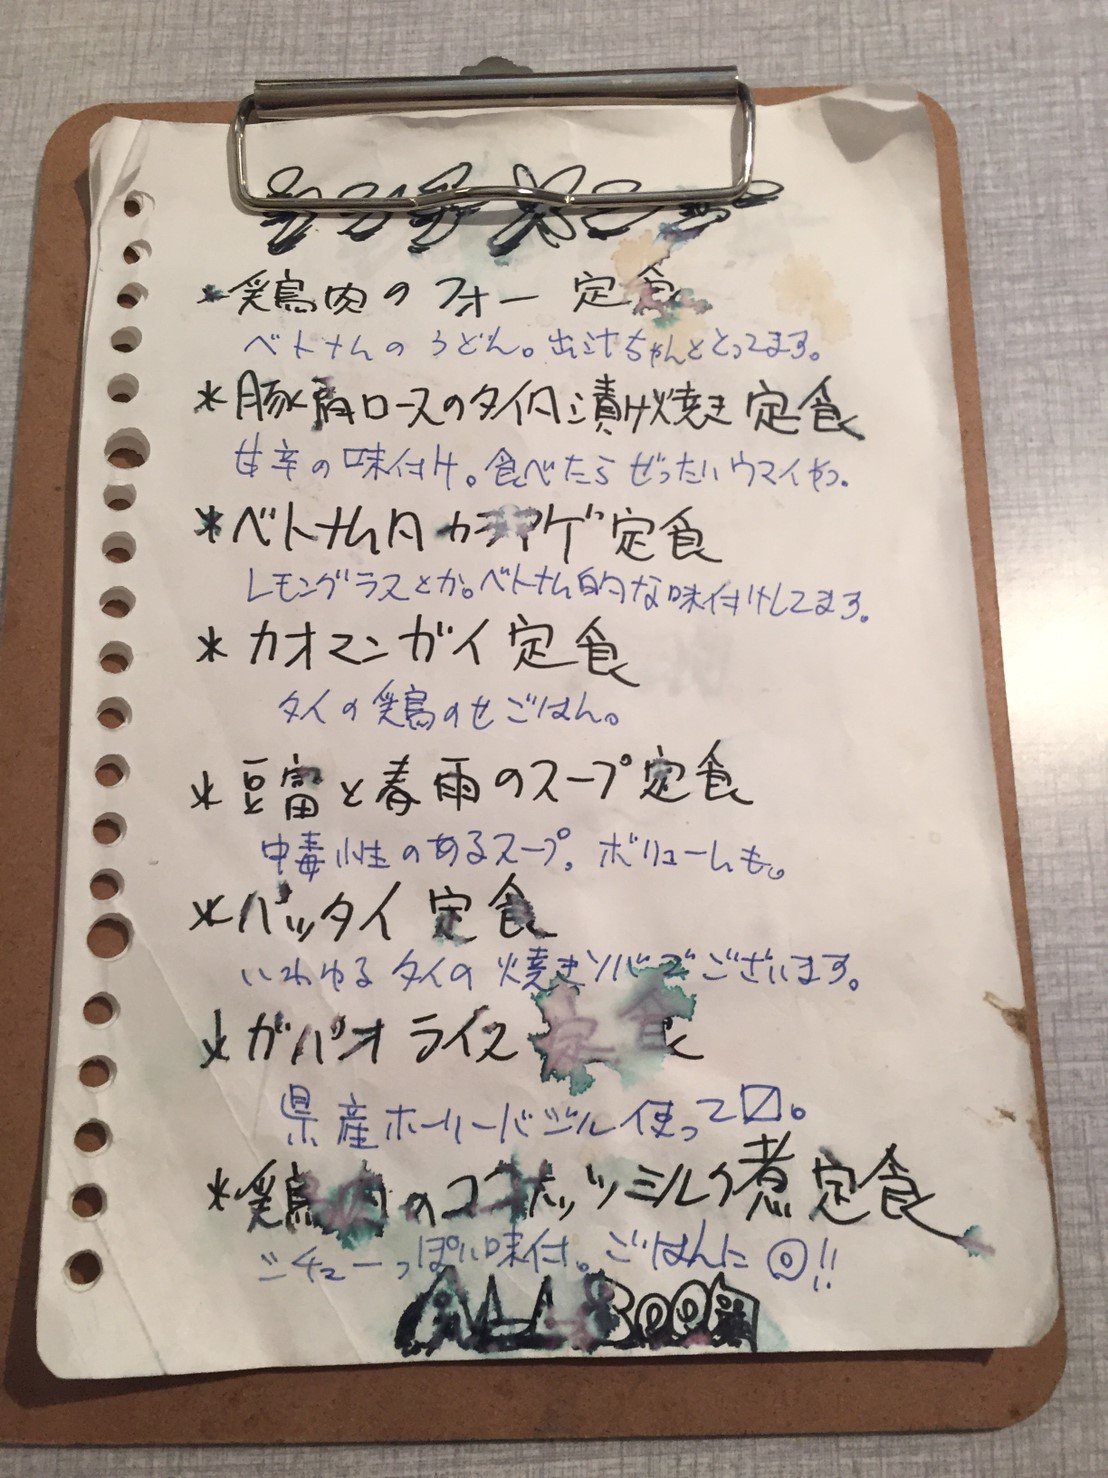 ランチメニュー
*鶏肉のフォー 定食
ベトナムのうどん。出汁ちゃんととってます。
*豚肩ロースのタイ風漬け焼き定食
甘辛の味付け。食べたらぜったいウマイやつ。
*ベトナム風カラアゲ定食
レモングラスとか。ベトナム的な味付けしてます。
*カオマンガイ定食
タイの鶏のせごはん。
*豆富と春雨のスープ定食
中毒性のあるスープ。ボリュームも。
*パッタイ定食
いわゆるタイの焼きソバでございます。
*ガパオライス定食
県産ホーリーバジル使って〼。
*鶏肉のココナッツミルク煮定食
シチューっぽい味付。ごはんに◎!!